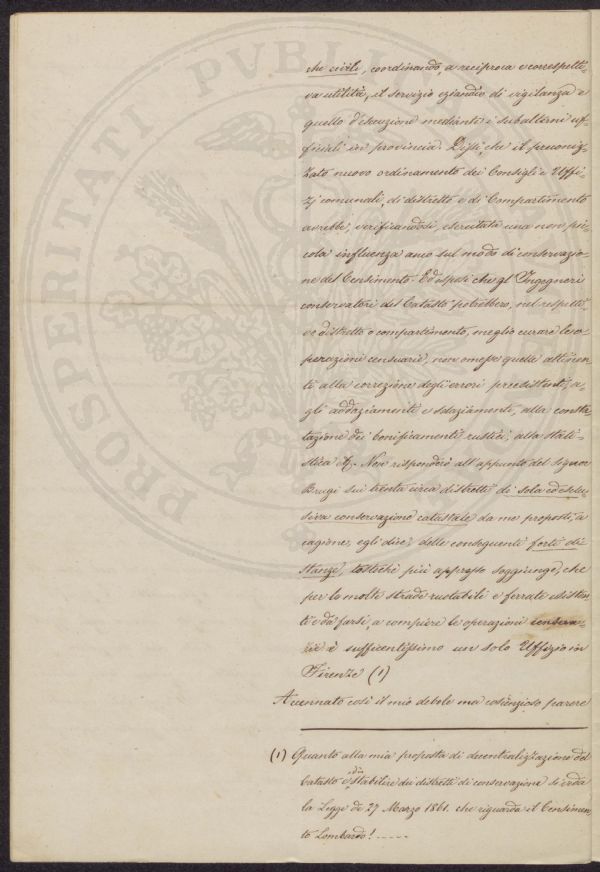 che civili, coordinando, a reciproca e correspetti-
va utilità, il servizio eziandio di vigilanza e
quello d'esecuzione mediante i subalterni uf-
ficiali in provincia. Dissi, che il preconiz-
zato nuovo ordinamento dei Consigli e Uffi-
zj comunali, di distretto e di Compartimento
avrebbe, verificandosi, esercitata una non pic-
cola influenza anco sul modo di conservazio-
ne del Censimento. Ed esposi che gl'Ingegneri
conservatori del Catasto potrebbero, nel respetti-
vo distretto o compartimento, meglio curare le o-
perazioni censuarie, non omesse quelle attinen-
ti alla correzione degli errori preesistenti, a-
gli addaziamenti e sdaziamenti, alla consta-
tazione dei bonificamenti rustici, alla stati-
stica &. Non risponderò all'appunto del Signor
Brugi sui trenta circa distretti di sola ed esclu-
siva conservazione catastale da me proposti, a
cagione, egli dice, delle conseguenti forti di-
stanze, tostochè più appresso soggiunge, che
per le molte strade ruotabili e ferrate esisten-
ti e da farsi, a compiere le operazioni censua-
rie è sufficentissimo un solo Uffizio in
Firenze (1)
Accennato così il mio debole ma coscenzioso parere
(1) Quanto alla mia proposta di decentralizzazione del
Catasto e di stabilire dei distretti di conservazione si veda
la Legge de 27 Marzo 1861. che riguarda il Censimen-
to Lombardo! .....
PROSPERITATI PVBLI